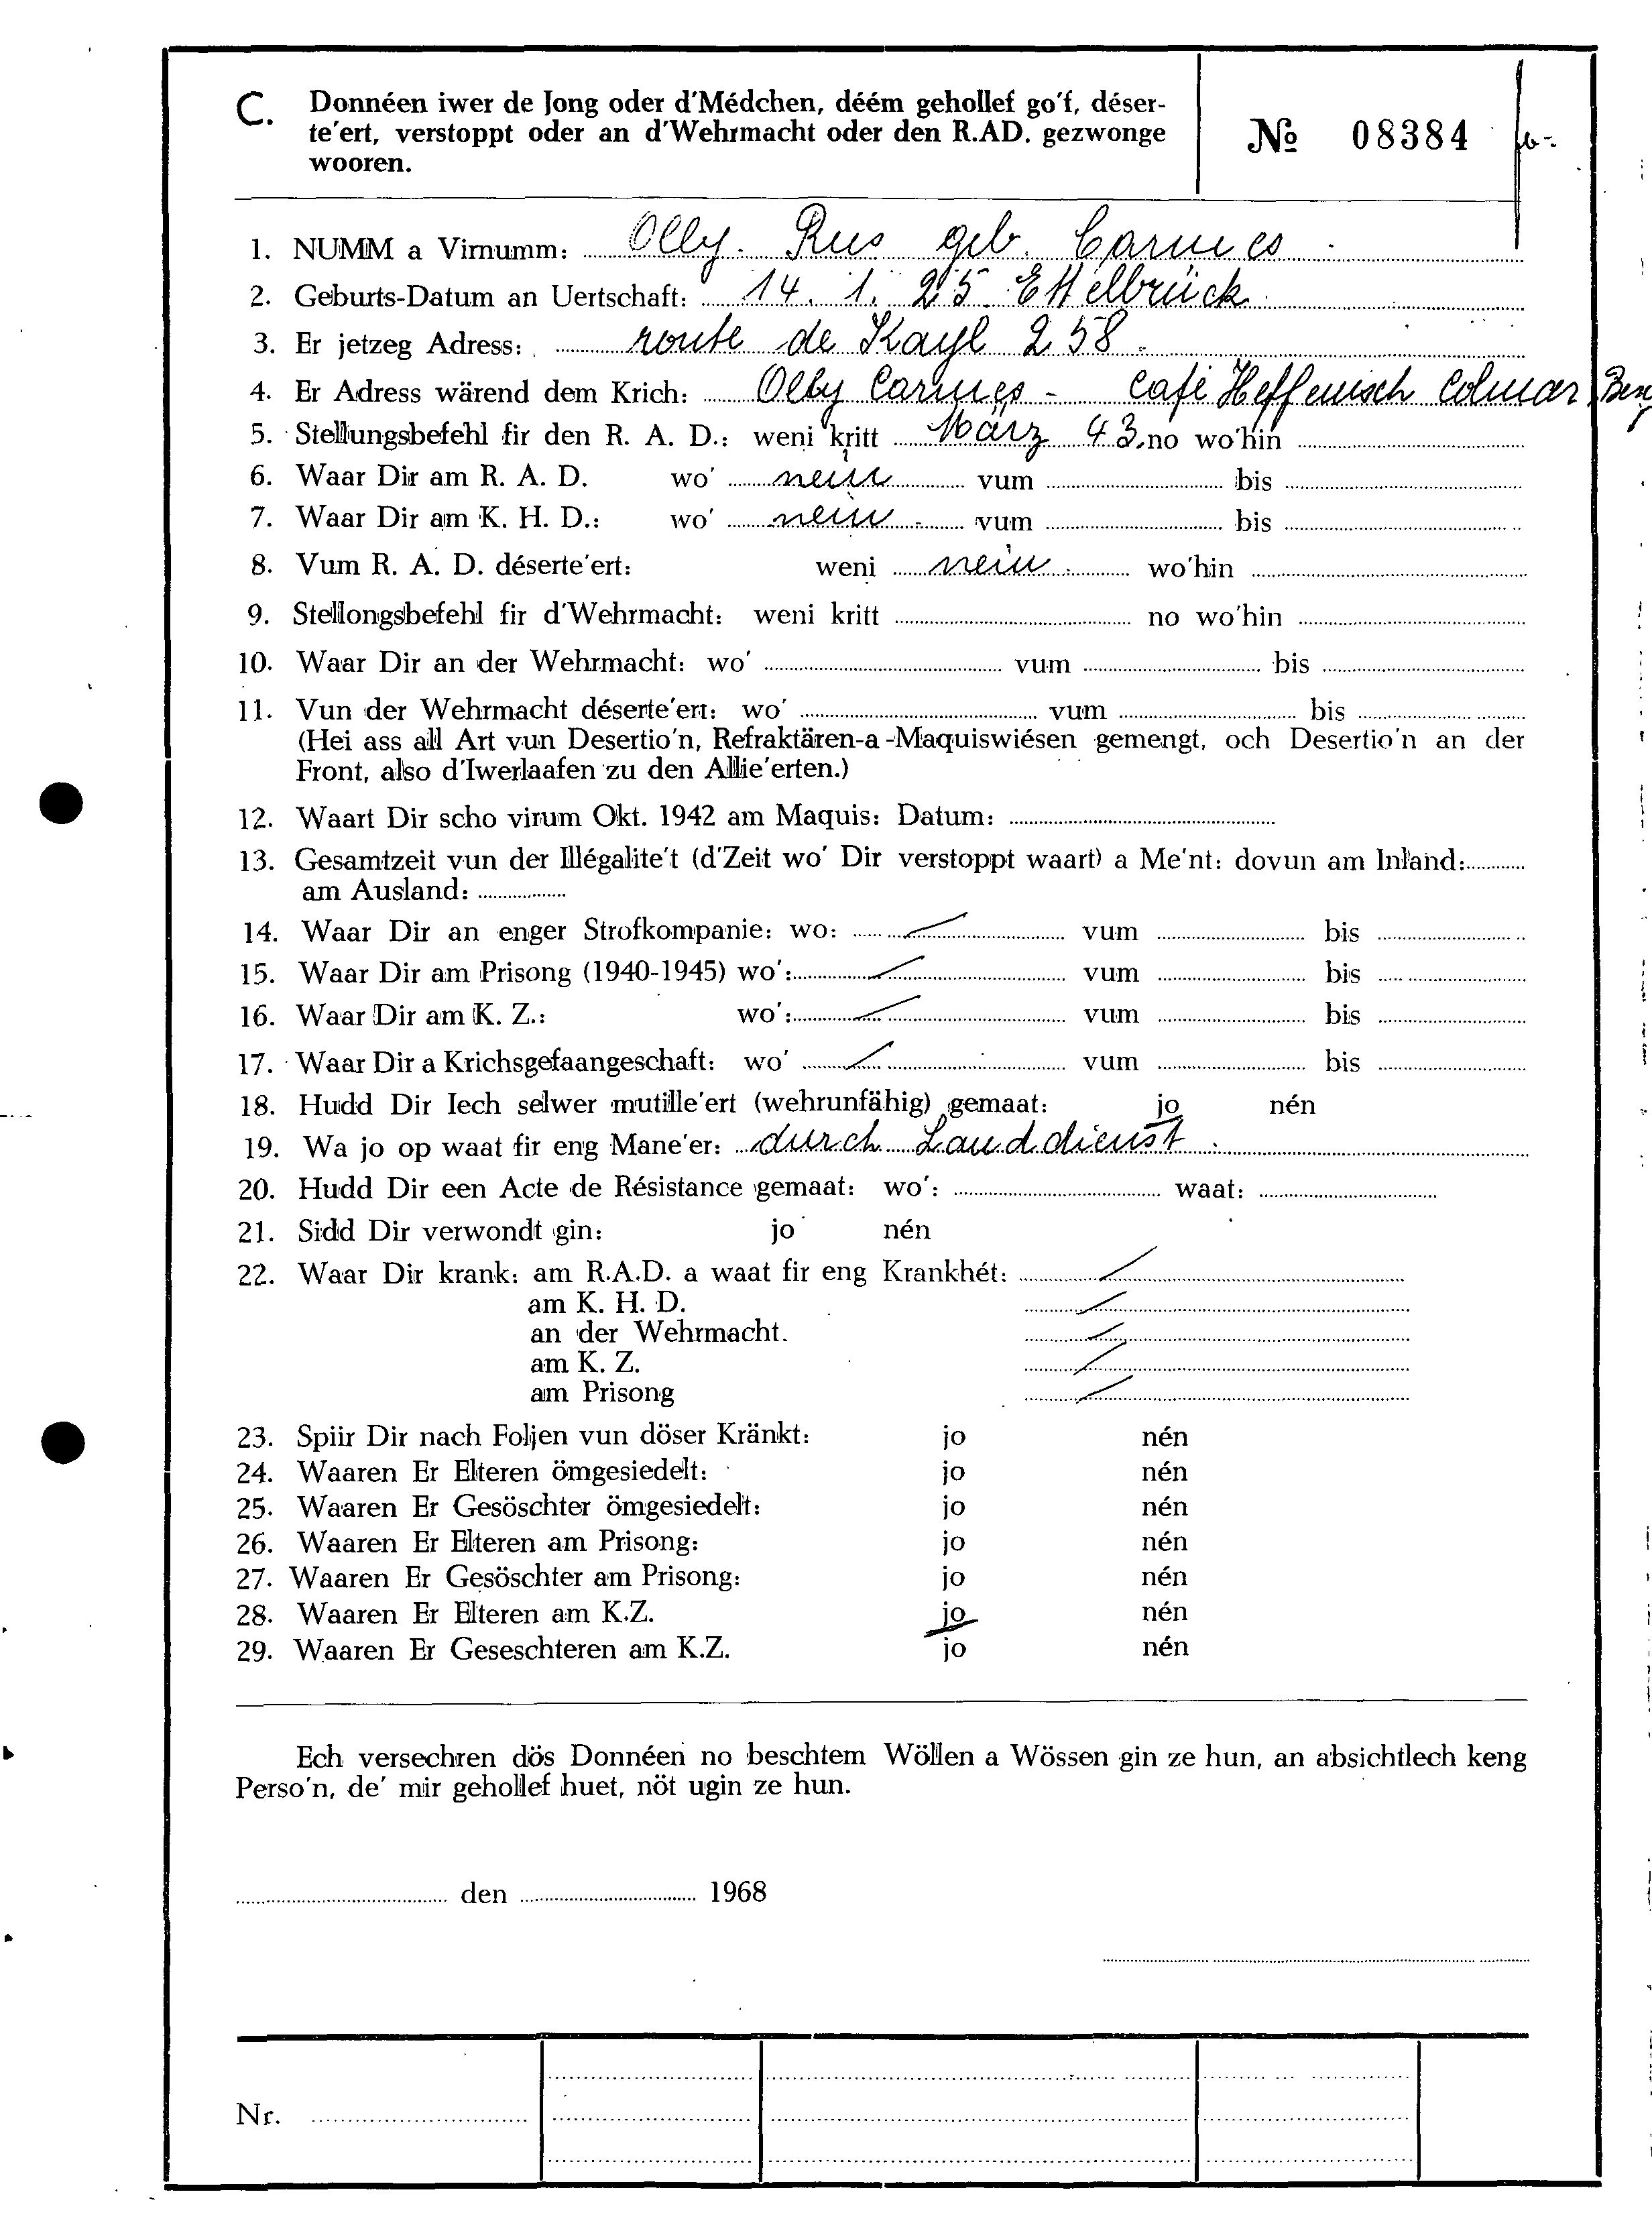 C. Donnéen iwer de Jong oder d'Médchen, déém gehollef go'f, déser-
te'ert, verstoppt oder an d'Wehrmacht oder den R.AD. gezwonge
wooren.
№ 08384
1. NUMM a Virnumm: Olly. Rus geb. Carmes
2. Geburts-Datum an Uertschaft: 14. 1. 25. Ettelbrück
3. Er jetzeg Adress: route de Kayl 258.
4. Er Adress wärend dem Krich: Olly Carmes - Café Heffenisch Colmar Berg
5. Stellungsbefehl fir den R. A. D.: weni kritt März 43. no wo'hin
6. Waar Dir am R. A. D. wo' nein vum bis
7. Waar Dir am K. H. D.: wo' nein vum bis
8. Vum R. A. D. déserte'ert: weni nein. wo'hin
9. Stellongsbefehl fir d'Wehrmacht: weni kritt no wo'hin
10. Waar Dir an der Wehrmacht: wo' vum bis
11. Vun der Wehrmacht déserte'ert: wo' vum bis
(Hei ass all Art vun Desertio'n, Refraktären-a-Maquiswiésen gemengt, och Desertio'n an der
Front, also d'Iwerlaafen zu den Allie'erten.)
12. Waart Dir scho virum Okt. 1942 am Maquis: Datum:
13. Gesamtzeit vun der Illégalite't (d'Zeit wo' Dir verstoppt waart) a Me'nt: dovun am Inland:
am Ausland:
14. Waar Dir an enger Strofkompanie: wo: vum bis
15. Waar Dir am Prisong (1940-1945) wo': vum bis
16. Waar Dir am K. Z.: wo': vum bis
17. Waar Dir a Krichsgefaangeschaft: wo' vum bis
18. Hudd Dir Iech selwer mutille'ert (wehrunfähig) gemaat: jo nén
19. Wa jo op waat fir eng Mane'er: durch Landdienst.
20. Hudd Dir een Acte de Résistance gemaat: wo': waat:
21. Sidd Dir verwondt gin: jo nén
22. Waar Dir krank: am R.A.D. a waat fir eng Krankhét:
am K. H. D.
an der Wehrmacht.
am K. Z.
am Prisong
23. Spiir Dir nach Foljen vun döser Kränkt: jo nén
24. Waaren Er Elteren ömgesiedelt: jo nén
25. Waaren Er Gesöschter ömgesiedelt: jo nén
26. Waaren Er Elteren am Prisong: jo nén
27. Waaren Er Gesöschter am Prisong: jo nén
28. Waaren Er Elteren am K.Z. jo nén
29. Waaren Er Geseschteren am K.Z. jo nén
Ech versechren dös Donnéen no beschtem Wöllen a Wössen gin ze hun, an absichtlech keng
Perso'n, de' mir gehollef huet, nöt ugin ze hun.
den 1968
Nr.